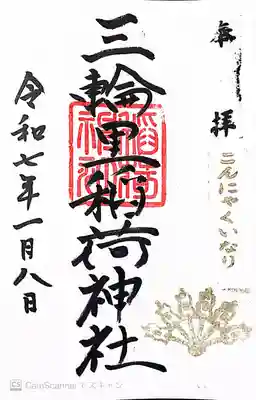 奉拝
こんにゃくいなり
三輪里稲荷神社
令和七年一月八日
CS CamScanner でスキャン